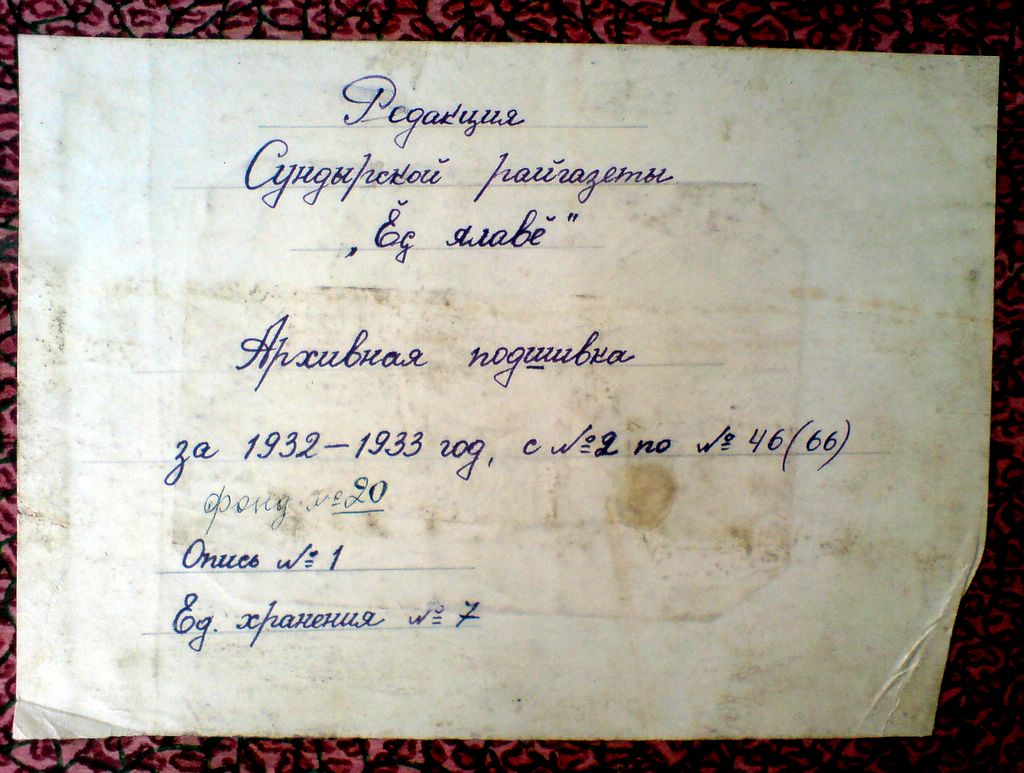 Редакция
Сундырской райгазеты
„Ӗҫ ялавӗ"
Архивная подшивка
за 1932–1933 год, с №2 по № 46(66)
фонд №20
Опись № 1
Ед. хранения № 7